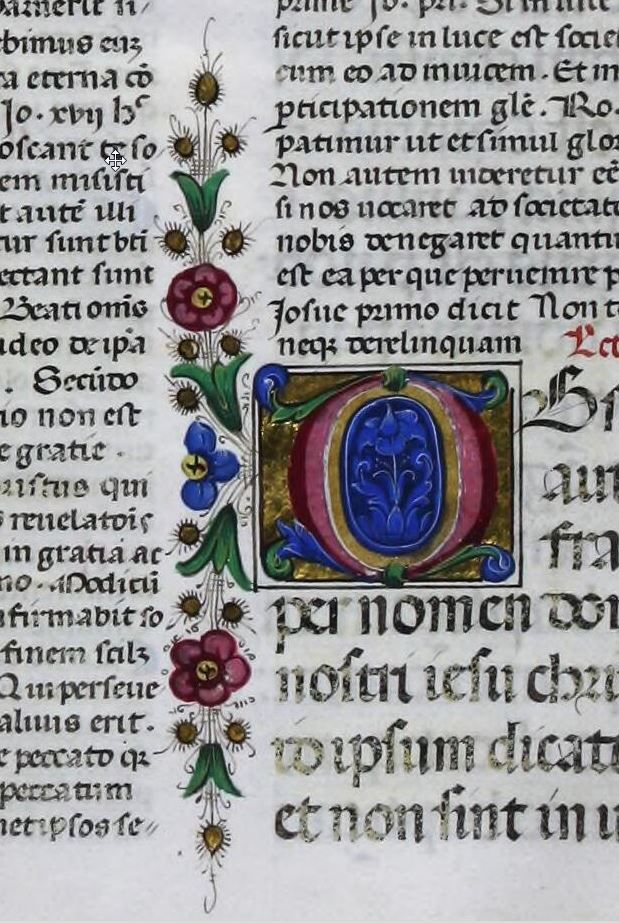 ebimus
ra eterna cō
Jo. xvij
noscant te so
em misisti
t autē illi
tur sunt bti
ectant sunt
Beati omīs
ideo de ip̄a
. Secūdo
io non est
e gratie .
ristus qui
s reuelatōis
in gratiā ac
no. Modicū
nfirmabit so
finem
Qui perseue
saluus erit.
e peccato qr
peccatum
metipsos se
sicut ipse in luce est societ
cum eo ad inuicem. Et in
pticipationem glē. Ro.
patimur ut et simul glor
Non autem uideretur eē
si nos uocaret ad societate
nobis denegaret quantu
est ea per que peruenire p
Josue primo dicit Non te
neqz derelinquam
Obs
aut
fra
per nomen dom
nostri iesu chri
id ipsum dicat
et non sint in u